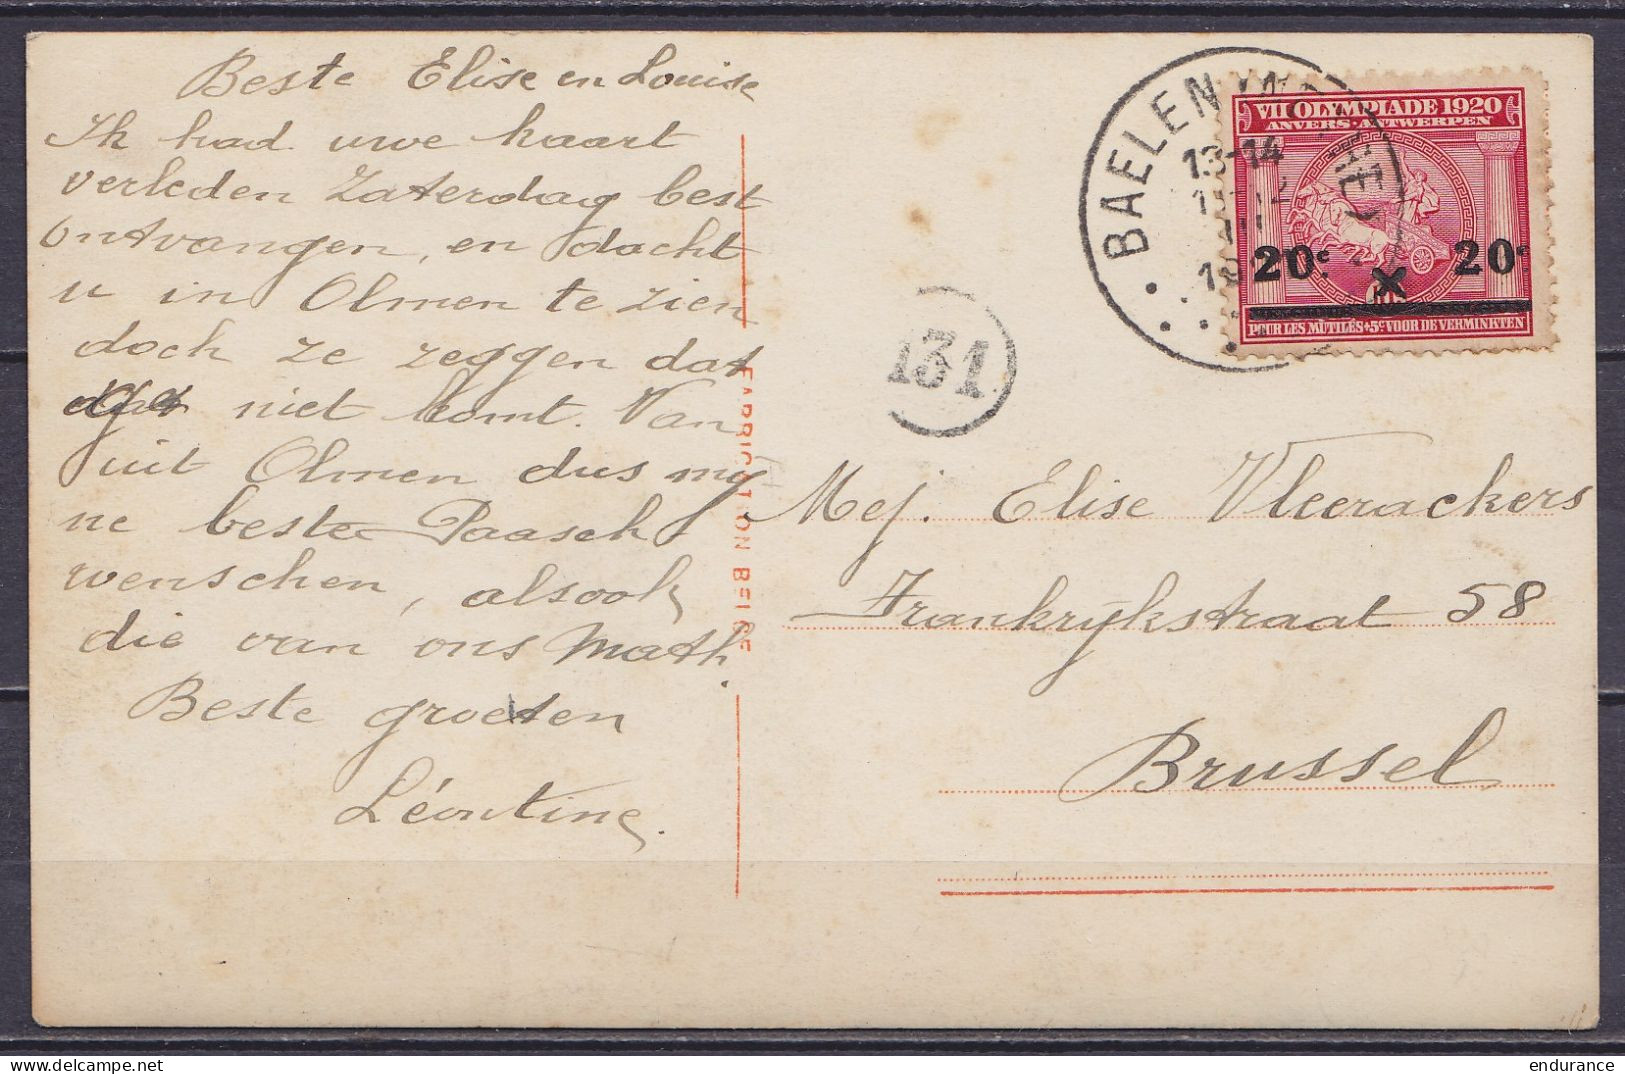 Beste Elise en Louise
Ik had uwe kaart
verleden Zaterdag best
ontvangen, en dacht
u in Olmen te zien
doch ze zeggen dat
niet komt. Van
uit Olmen dus mij
ne beste Paasch
wenschen, alsook
die van ons Math.
Beste groeten
Léontine.
FABRICATION BELGE
BAELEN
13-14
VII OLYMPIADE 1920
ANVERS·ANTWERPEN
20c 20c
POUR LES MUTILÉS+5c VOOR DE VERMINKTEN
131
Mej. Elise Vleerackers
Frankrijkstraat 58
Brussel
delcampe.net
endurance